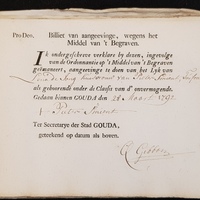 Pro Deo. Billiet van aangeevinge, wegens het
Middel van 't Begraven.
IK ondergeschreven verklare by deezen, ingevolge
van de Ordonnantie op 't Middel van 't Begraven
geëmaneert, aangeevinge te doen van het Lyk van
als gehoorende onder de Classis van d' onvermogende.
Gedaan binnen GOUDA, den 28 Maart 1791.
Pieter
Ter Secretarye der Stad GOUDA,
geteekend op datum als boven.